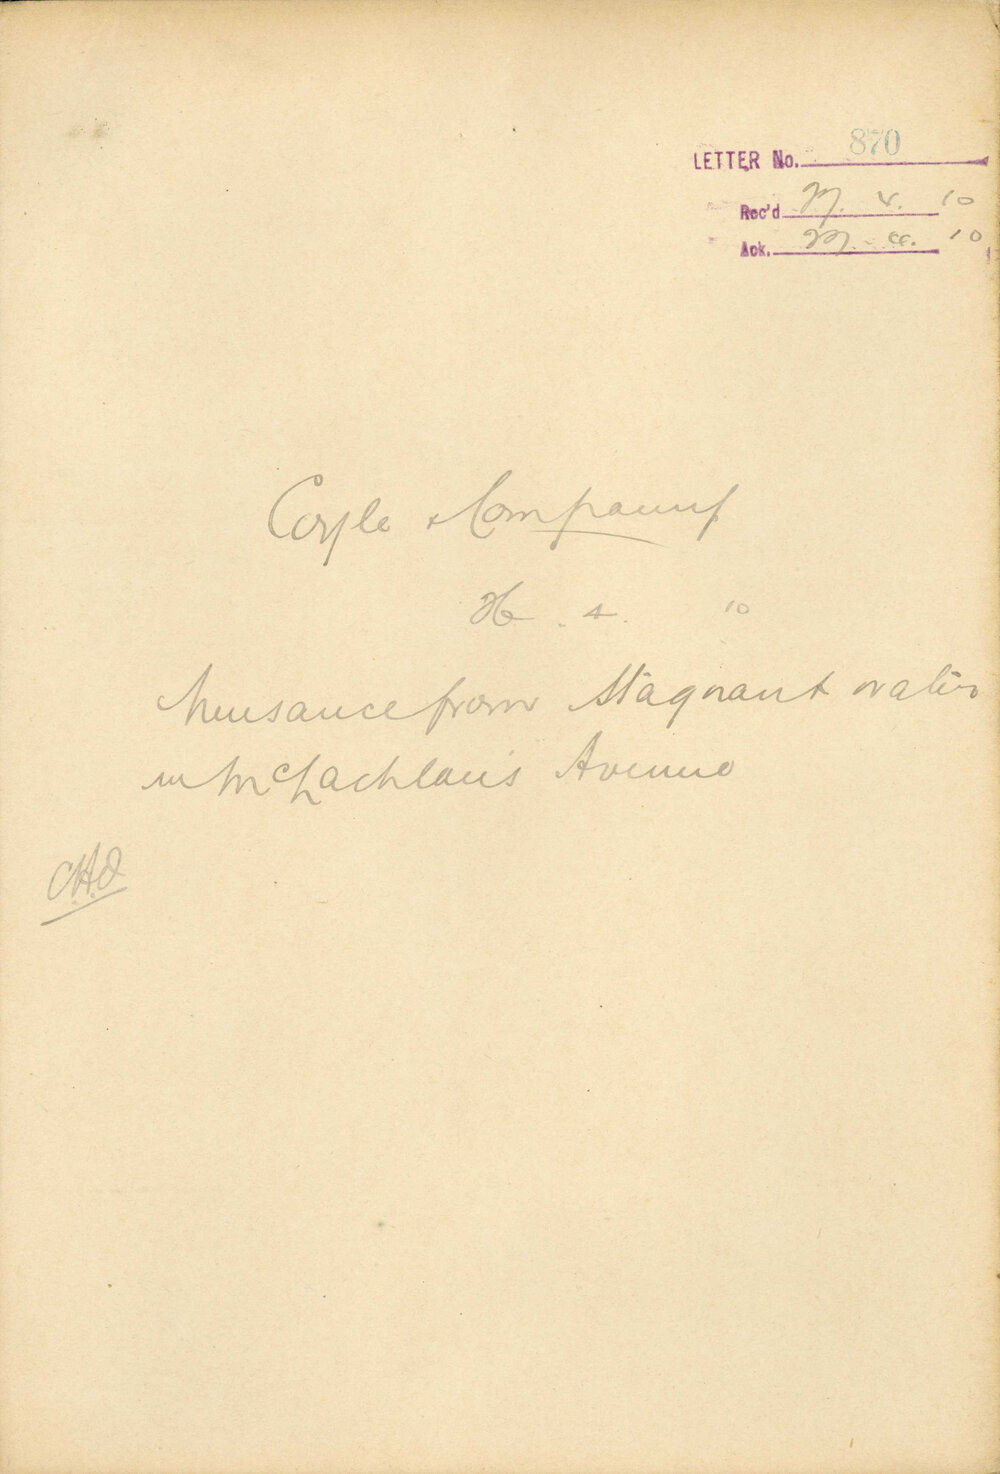 LETTER No. 870
Rec'd 4. 10
Ack. 10
Coyle & Company
4. 10
Nuisance from Stagnant water
in McLachlan's Avenue